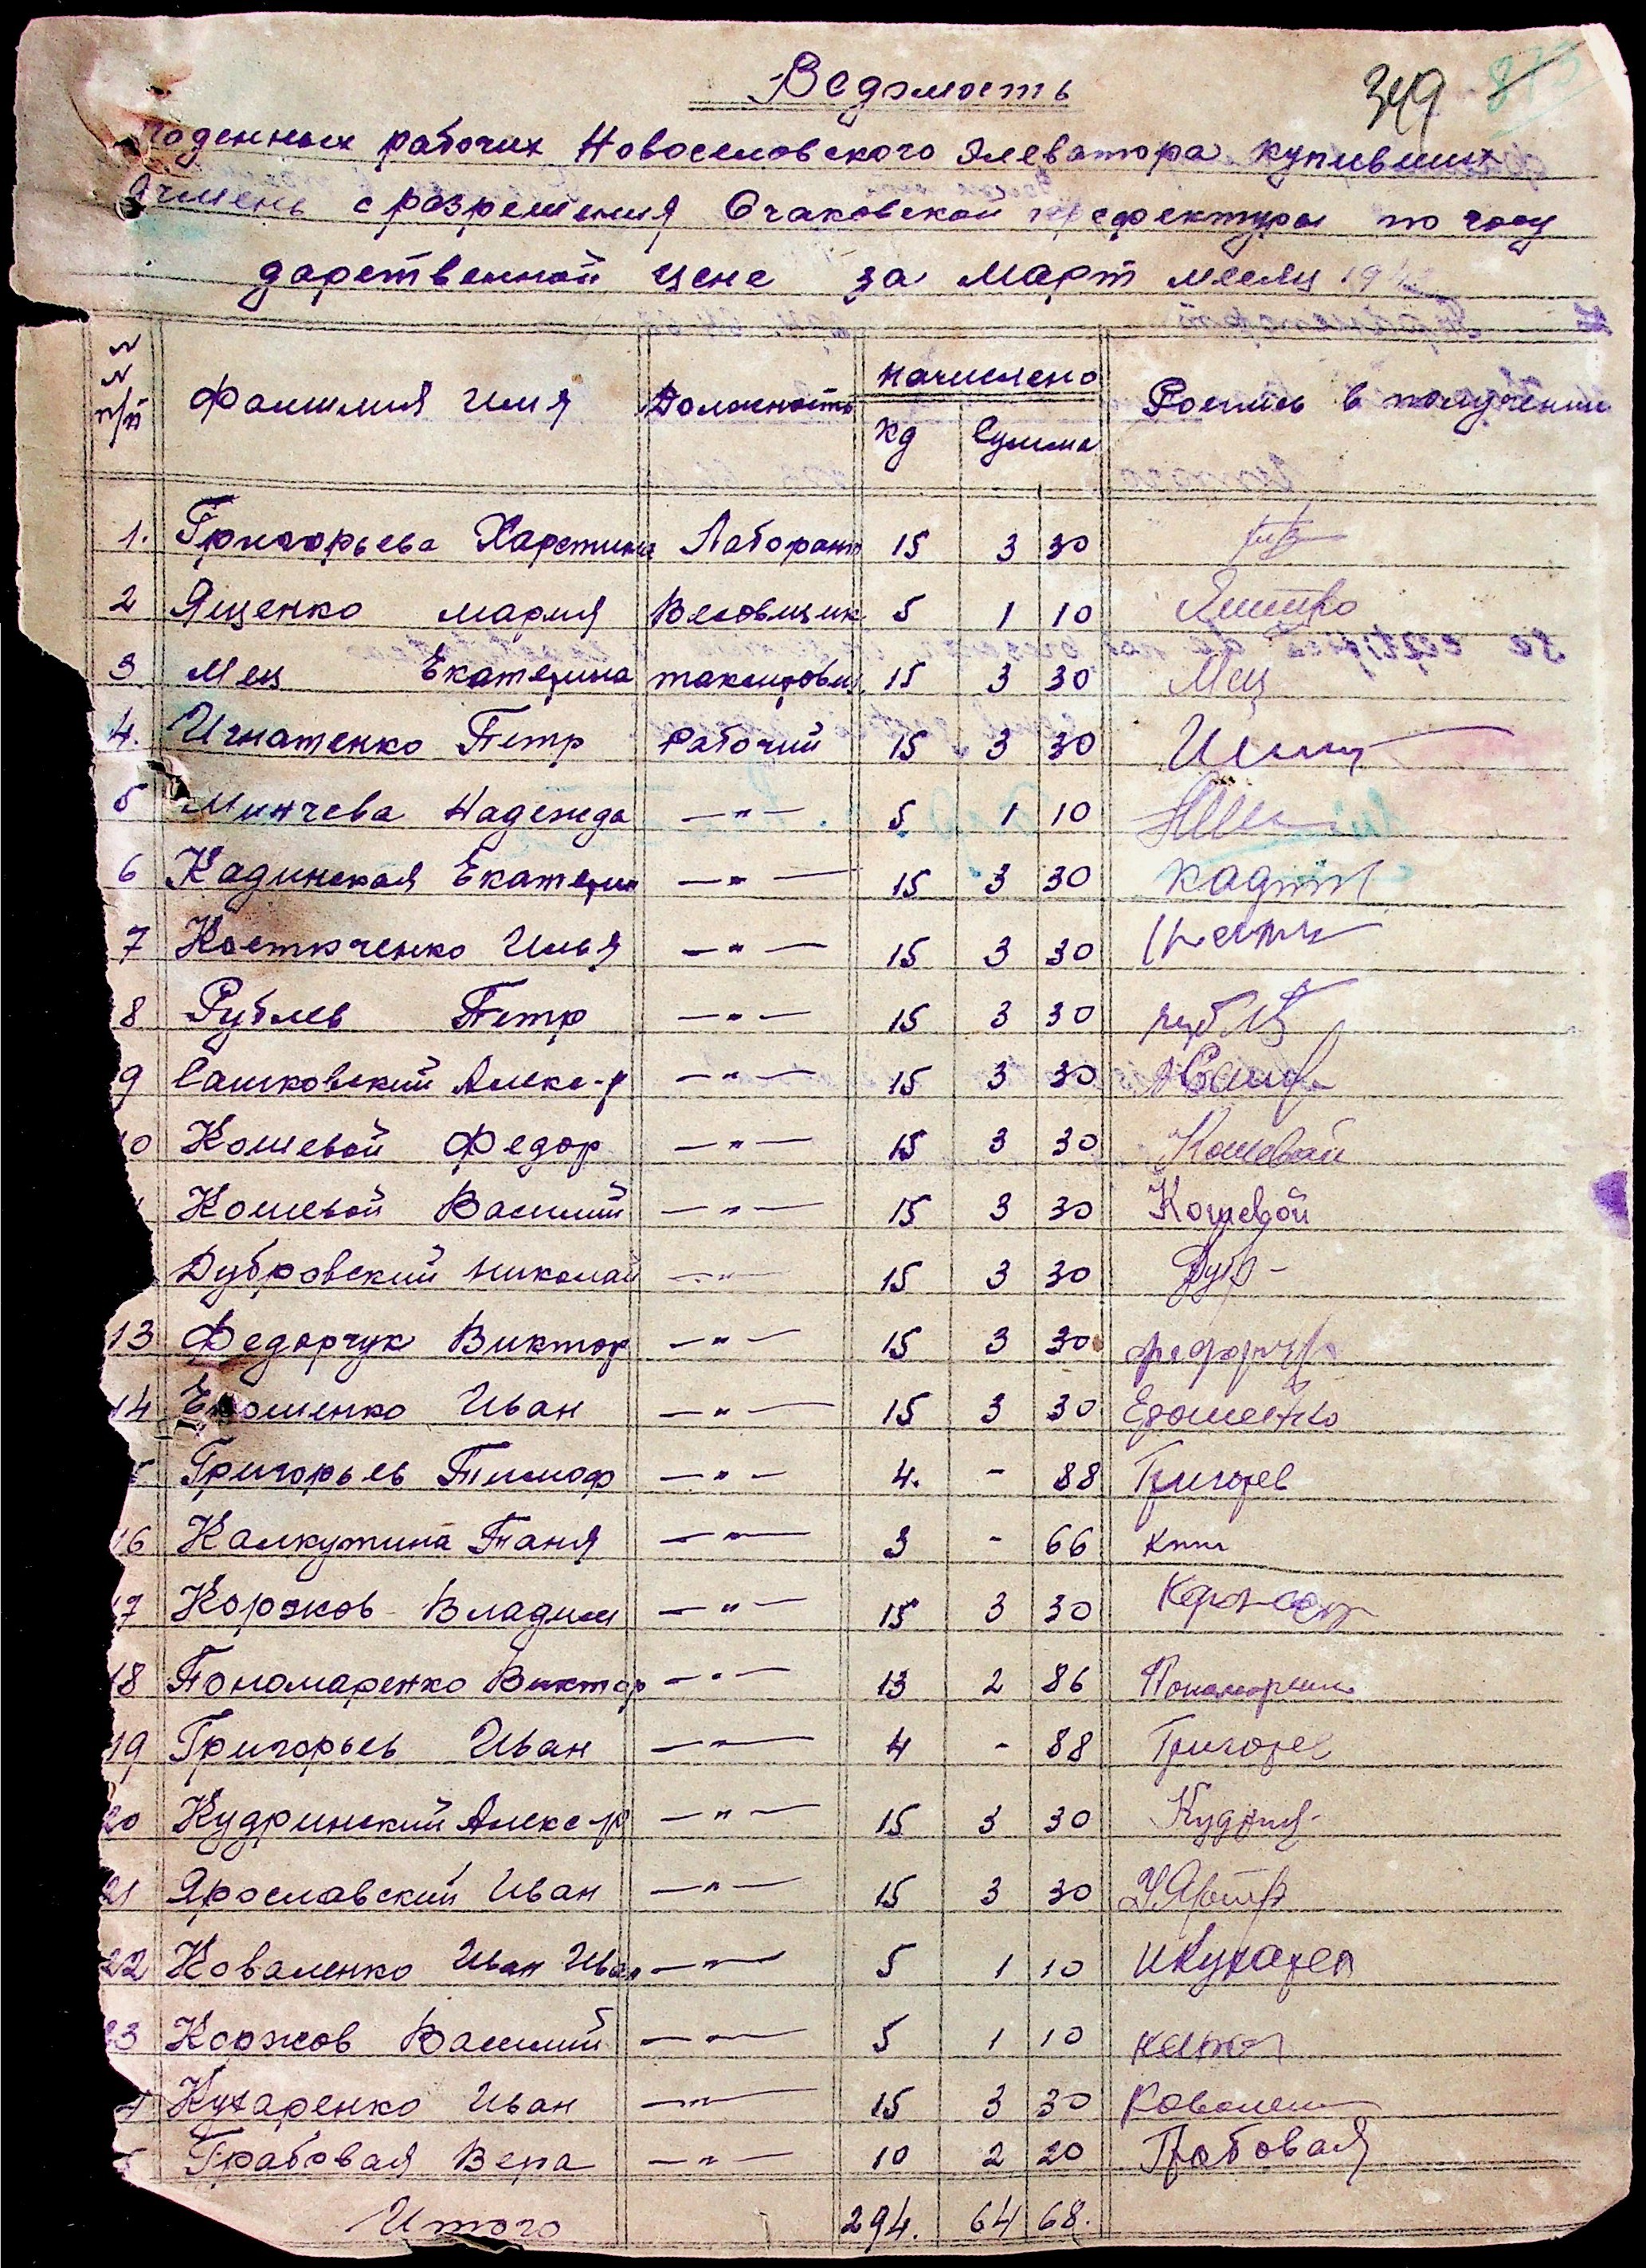 349 873
Ведомость
поденных рабочих Новоселовского Элеватора купивших
Ячмень с разрешения Очаковской префектуры по госу
дарственной цене за Март месяц 194
№ № п/п Фамилия Имя Должность Начислено Роспись в получении
кг Сумма
1. Григорьева Харстина Лаборант 15 3 30
2 Ященко Мария Весовщик 5 1 10
3 Мец Екатерина таксировщ. 15 3 30 Мец
4. Игнатенко Петр Рабочий 15 3 30
5 Минчева Надежда —"— 5 1 10
6 Кадинская Екатерин —"— 15 3 30
7 Костюченко Илья —"— 15 3 30
8 Рублев Петр —"— 15 3 30
9 Сашковский Алекс-р —"— 15 3 30
10 Кошевой Федор —"— 15 3 30 Кошевой
Кошевой Василий —"— 15 3 30 Кошевой
Дубровский Николай —"— 15 3 30 Дубр-
13 Федорчук Виктор —"— 15 3 30
14 Ерошенко Иван —"— 15 3 30 Ерошенко
5 Григорьев Тимоф —"— 4. - 88 Григорев
16 Калкутина Таня —"— 3 - 66
17 Коржов Владим —"— 15 3 30
18 Пономаренко Виктор —"— 13 2 86
19 Григорьев Иван —"— 4 - 88 Григорев
20 Кудринский Алекс-р —"— 15 3 30
21 Ярославский Иван —"— 15 3 30
22 Коваленко Иван Иван —"— 5 1 10 ИКухарен
23 Коржов Василий —"— 5 1 10
4 Кухаренко Иван —"— 15 3 30
5 Грабовая Вера —"— 10 2 20 Грабовая
Итого 294. 64 68.